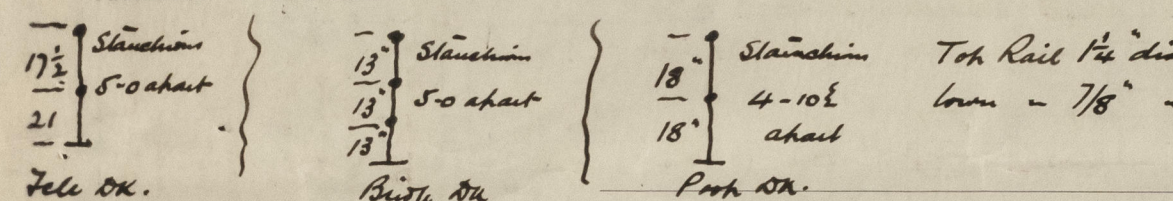 17½
21
Stanchions
5-0 apart
Fcle DK.
13"
13"
13"
Stanchions
5-0 apart
Bridge DK
18"
18"
Stanchions
4-10½
apart
Poop DK.
Top Rail 1¼" dia
lower " 7/8" "